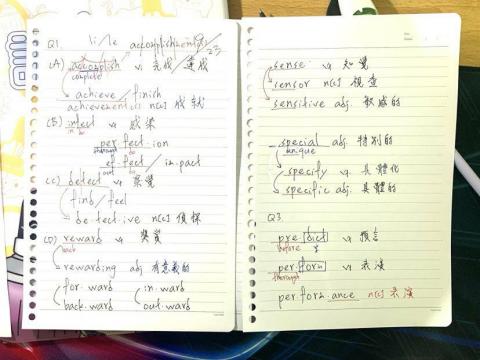 Q1. li/le accomplishment(s)
9/23
(A) accomplish v. 完成/達成
complete
achieve / finish
achievement n[c] 成就
(B) infect v. 感染
in do
per.fect.ion
through do
ef.fect / im.pact
out do
(C) detect v. 察覺
find / feel
de.tect.ive n[c] 偵探
(D) reward v. 獎賞
back
rewarding adj. 有意義的
for.ward in.ward
back.ward out.ward
sense v. 知覺
sensor n[c]
sensitive adj. 敏感的
special adj. 特別的
unique
specify v. 具體化
specific adj. 具體的
Q3.
pre.dict v. 預言
before
per.form v. 表演
through
per.form.ance n[c] 表演